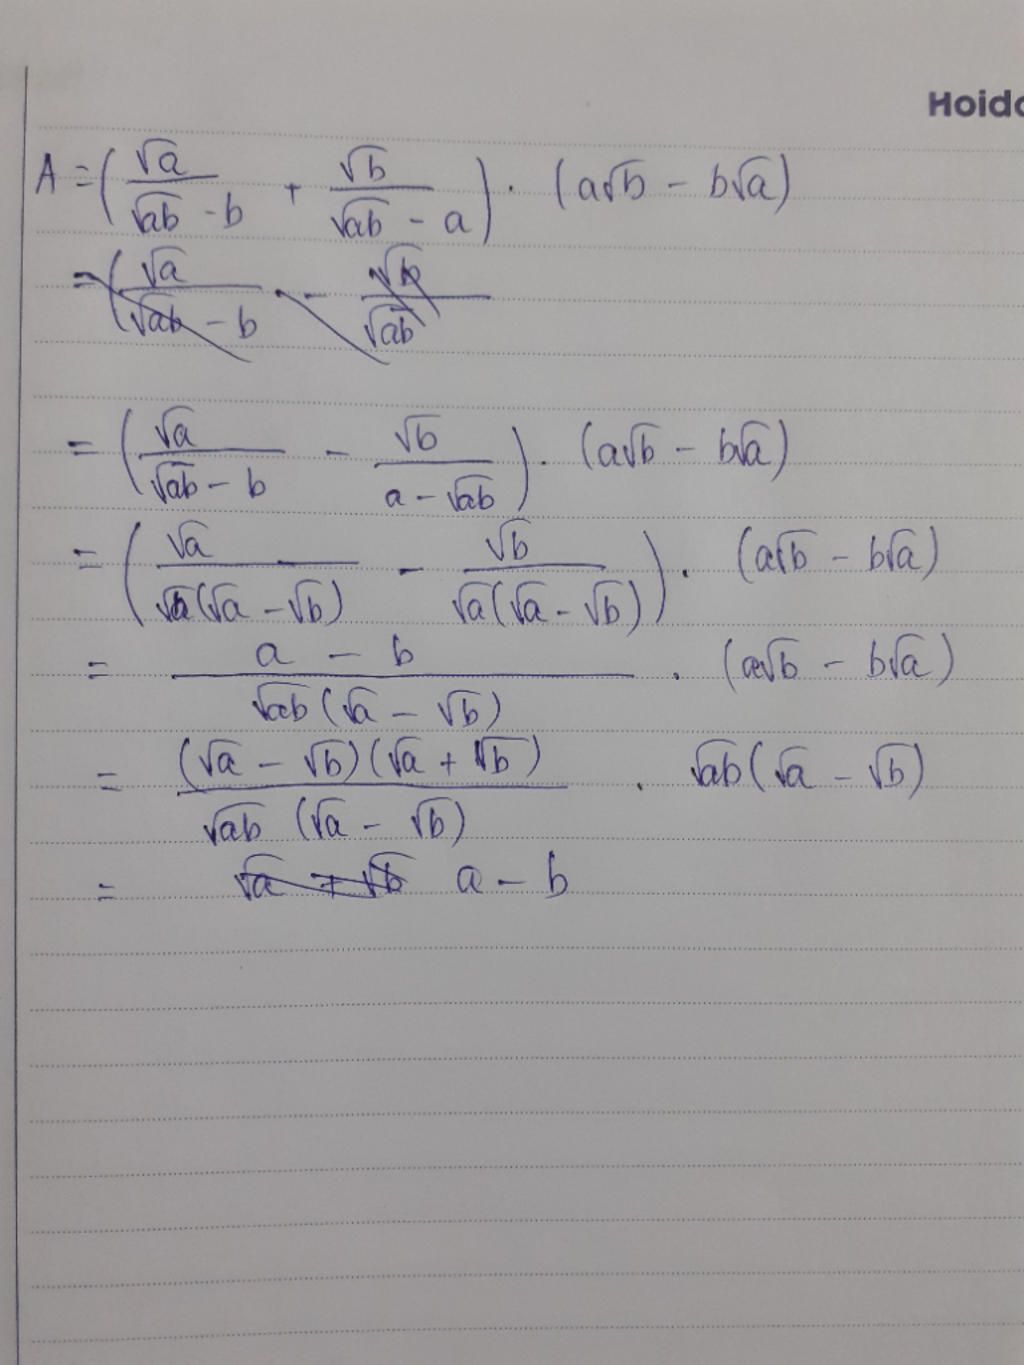 Hoido
A = (√a / (√ab - b) + √b / (√ab - a)) . (a√b - b√a)
= (√a / (√ab - b) - √b / √ab
= (√a / (√ab - b) - √b / (a - √ab)) . (a√b - b√a)
= (√a / (√b(√a - √b)) - √b / (√a(√a - √b))) . (a√b - b√a)
= (a - b) / (√ab(√a - √b)) . (a√b - b√a)
= (√a - √b)(√a + √b) / (√ab (√a - √b)) . √ab(√a - √b)
= √a + √b a - b